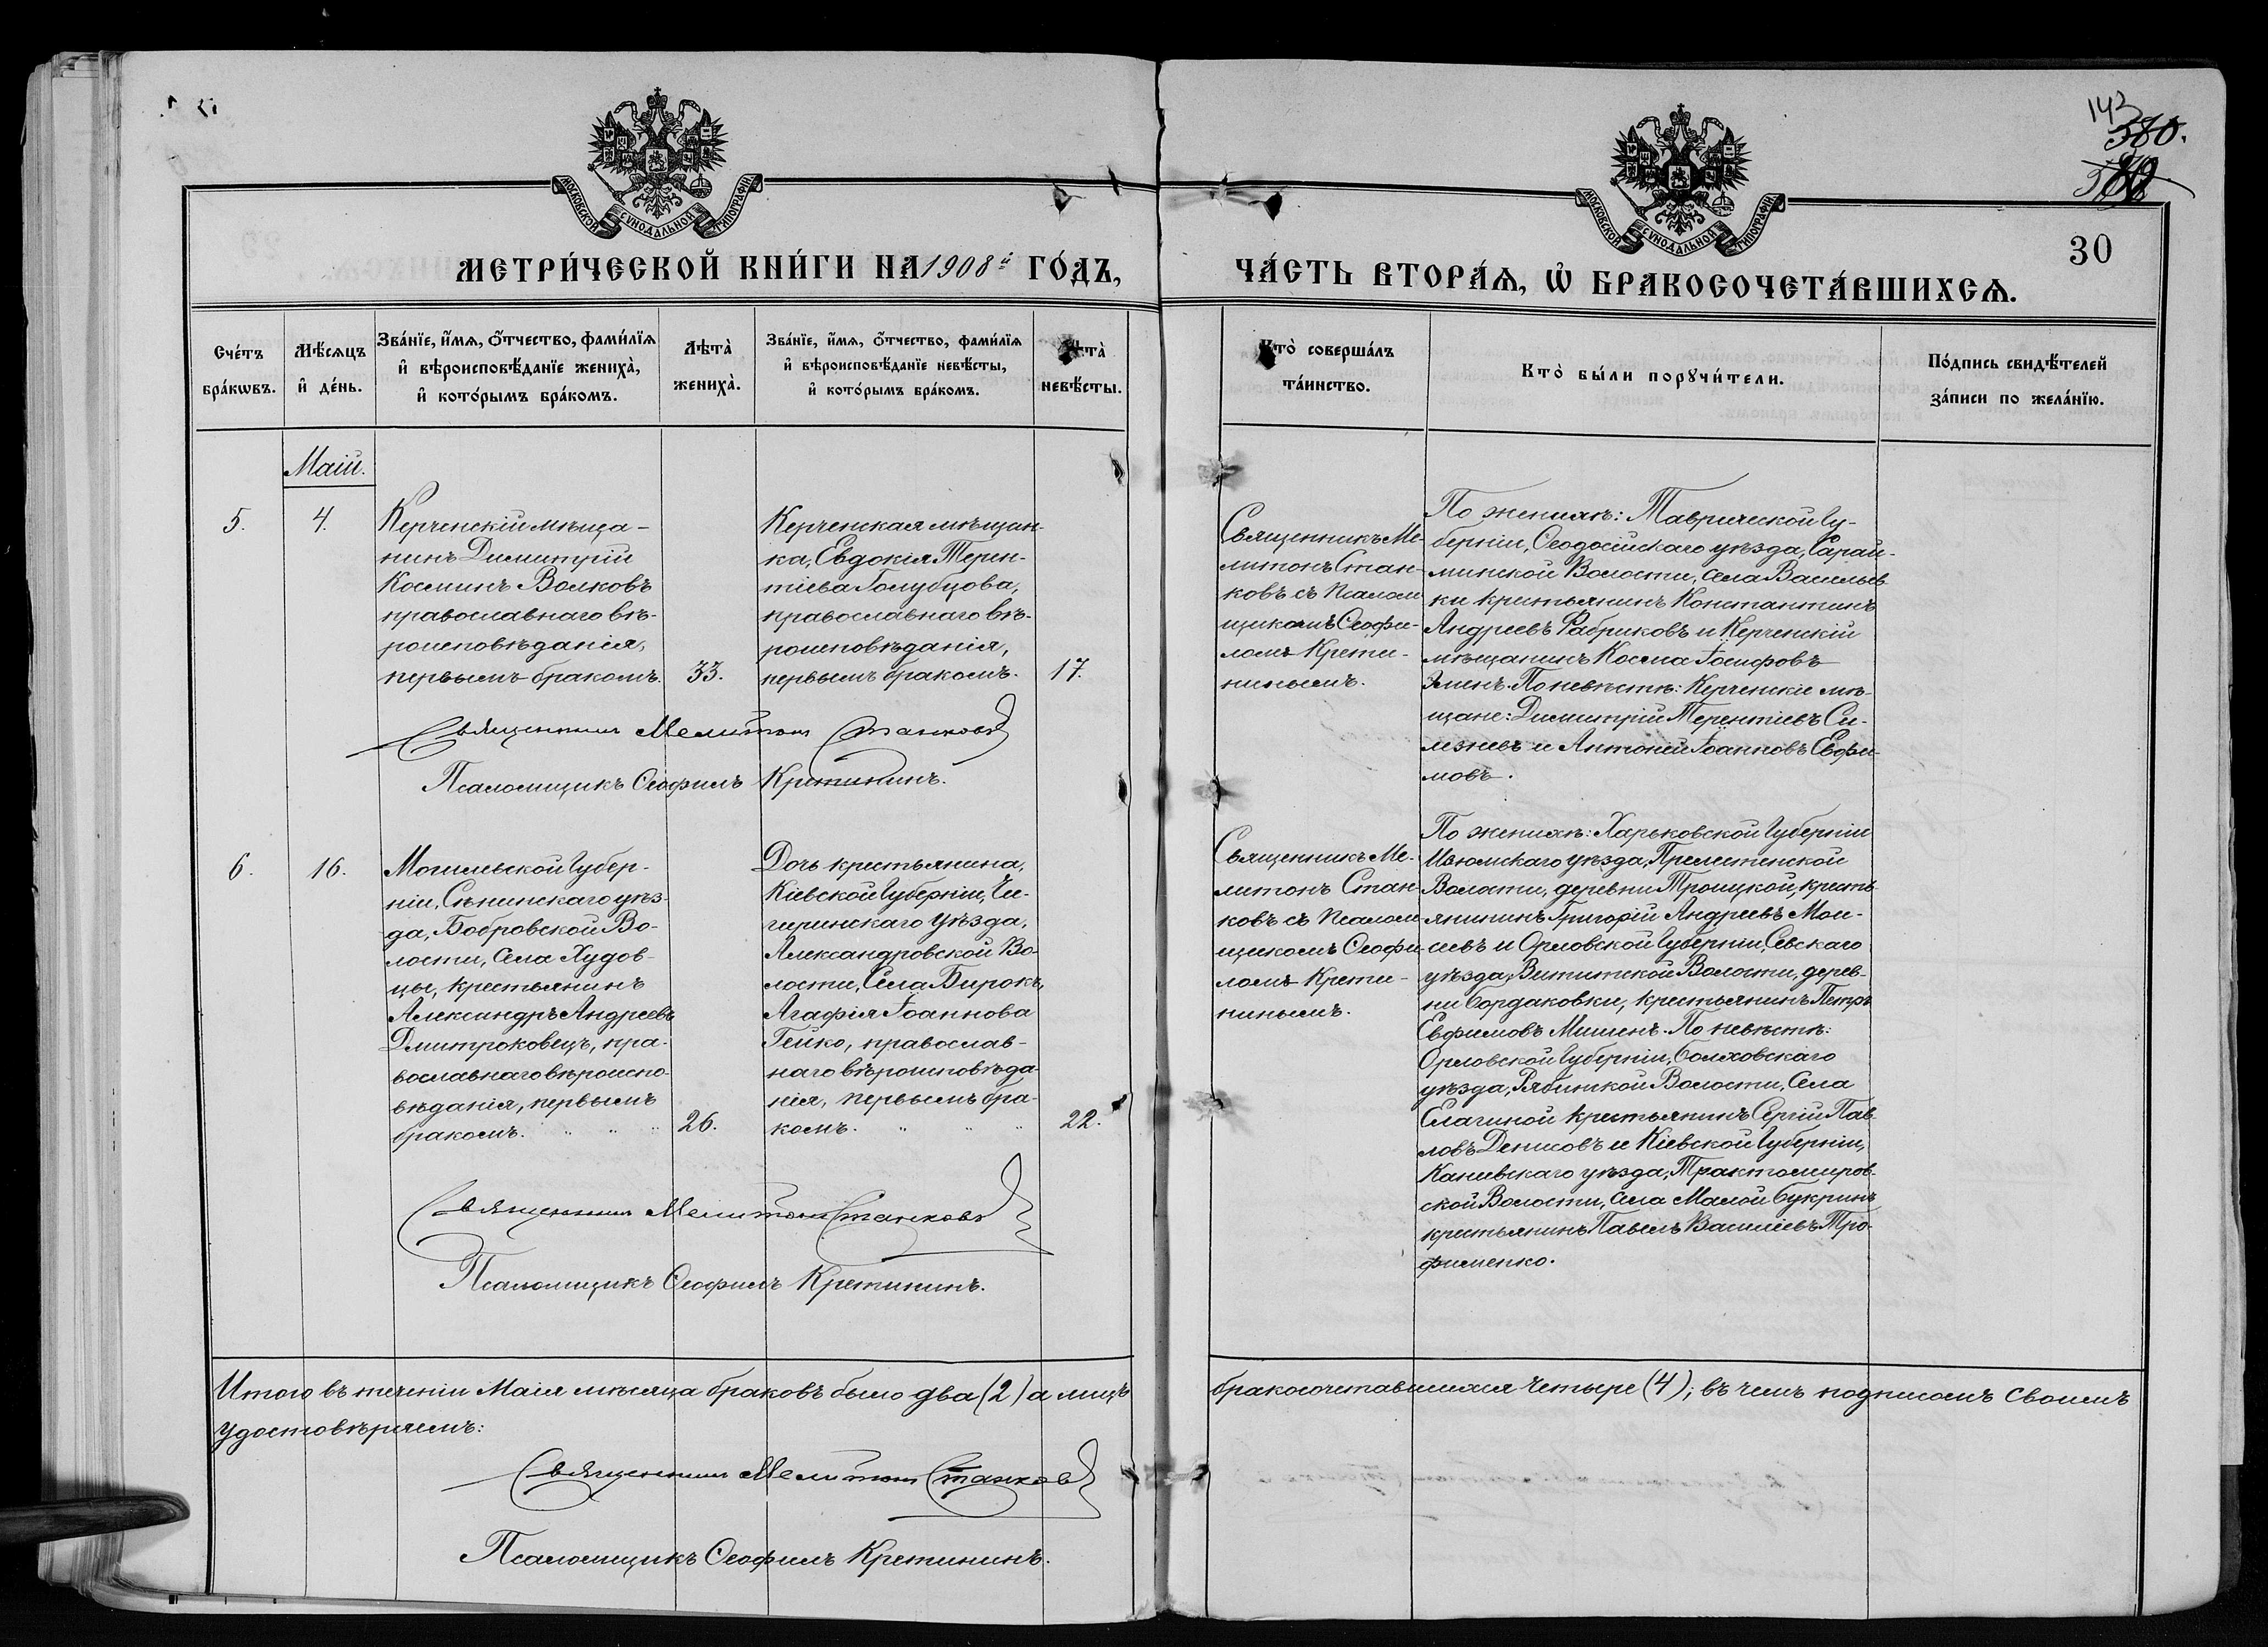 143
380.
МОСКОВСКОЙ СУНОДАЛЬНОЙ ТИПОГРАФІИ
МОСКОВСКОЙ СУНОДАЛЬНОЙ ТИПОГРАФІИ
30
МЕТРИ́ЧЕСКОЙ КНИ́ГИ НА 1908й ГО́ДЪ,
ЧА́СТЬ ВТОРА́Ѧ, Ѡ҆ БРАКОСОЧЕТА́ВШИХСѦ.
Сче́тъ
бра́кѡвъ.
Мѣ́сѧцъ
и҆ де́нь.
Зва́нїе, и҆́мѧ, ѻ҆́тчество, фами́лїѧ
и҆ вѣроисповѣ́данїе жениха̀,
и҆ кото́рымъ бра́комъ.
Лѣта̀
жениха̀.
Зва́нїе, и҆́мѧ, ѻ҆́тчество, фами́лїѧ
и҆ вѣроисповѣ́данїе невѣ́сты,
и҆ кото́рымъ бра́комъ.
Лѣта̀
невѣ́сты.
Кто̀ соверша́лъ
та́инство.
Кто̀ бы́ли порꙋчи́тели.
По́дпись свидѣ́телей
за́писи по жела́нїю.
Маій.
5.
4.
Керченскій мѣща-
нинъ Димитрій
Косминъ Волковъ
православнаго вѣ-
роисповѣданія,
первымъ бракомъ.
33.
Керченская мѣщан-
ка, Евдокія Терен-
тіева Голубцова,
православнаго вѣ-
роисповѣданія,
первымъ бракомъ.
17.
Священникъ Ме-
литонъ Стан-
ковъ съ псалом
щикомъ Ѳеофи-
ломъ Крети-
нинымъ.
По женихѣ: Таврической Гу-
берніи, Ѳеодосійскаго уѣзда, Сарай-
минской Волости, села Васильев
ки крестьянинъ Константинъ
Андреевъ Фабриковъ и Керченскій
мѣщанинъ Косма Іосифовъ
Зминъ. По невѣстѣ: Керченскіе мѣ-
щане: Димитрій Терентіевъ Си-
лезневъ и Антоній Іоанновъ Евфи-
мовъ.
Священникъ Мелитонъ Станковъ
Псаломщикъ Ѳеофилъ Кретининъ.
6.
16.
Могилевской Губер-
ніи, Сѣнинскаго уѣз-
да, Бобровской Во-
лости, Села Худов-
цы, крестьянинъ
Александръ Андреевъ
Дмитроковецъ, пра-
вославнаго вѣроиспо-
вѣданія, первымъ
бракомъ.
26.
Дочь крестьянина,
Кіевской Губерніи, Чи-
гиринскаго Уѣзда,
Александровской Во-
лости, Села Бирокъ,
Агафія Іоаннова
Гейко, православ-
наго вѣроисповѣда-
нія, первымъ бра-
комъ.
22.
Священникъ Ме-
литонъ Стан-
ковъ съ псалом
щикомъ Ѳеофи-
ломъ Крети-
нинымъ.
По женихѣ: Харьковской Губерніи
Изюмскаго уѣзда, Прелестенской
Волости, деревни Троицкой, кресть-
янининъ Григорій Андреевъ Мои-
сеевъ и Орловской Губерніи, Севскаго
уѣзда, Вититской Волости, дерев-
ни Бордаковки, крестьянинъ Петръ
Евфимовъ Мишенъ. По невѣстѣ:
Орловской Губерніи, Болховскаго
уѣзда, Рябинской Волости, Села
Елагиной крестьянинъ Сергій Пав
ловъ Денисовъ и Кіевской Губерніи,
Каневскаго уѣзда, Трактомиров-
ской Волости, села Малой Букринъ
крестьянинъ Павелъ Василіевъ Тро-
фименко.
Священникъ Мелитонъ Станковъ
Псаломщикъ Ѳеофилъ Кретининъ.
Итого въ теченіи Маія мѣсяца браковъ было два (2) а лицъ бракосочетавшихся четыре (4); въ чемъ подписомъ своимъ
удостовѣряемъ:
Священникъ Мелитонъ Станковъ
Псаломщикъ Ѳеофилъ Кретининъ.